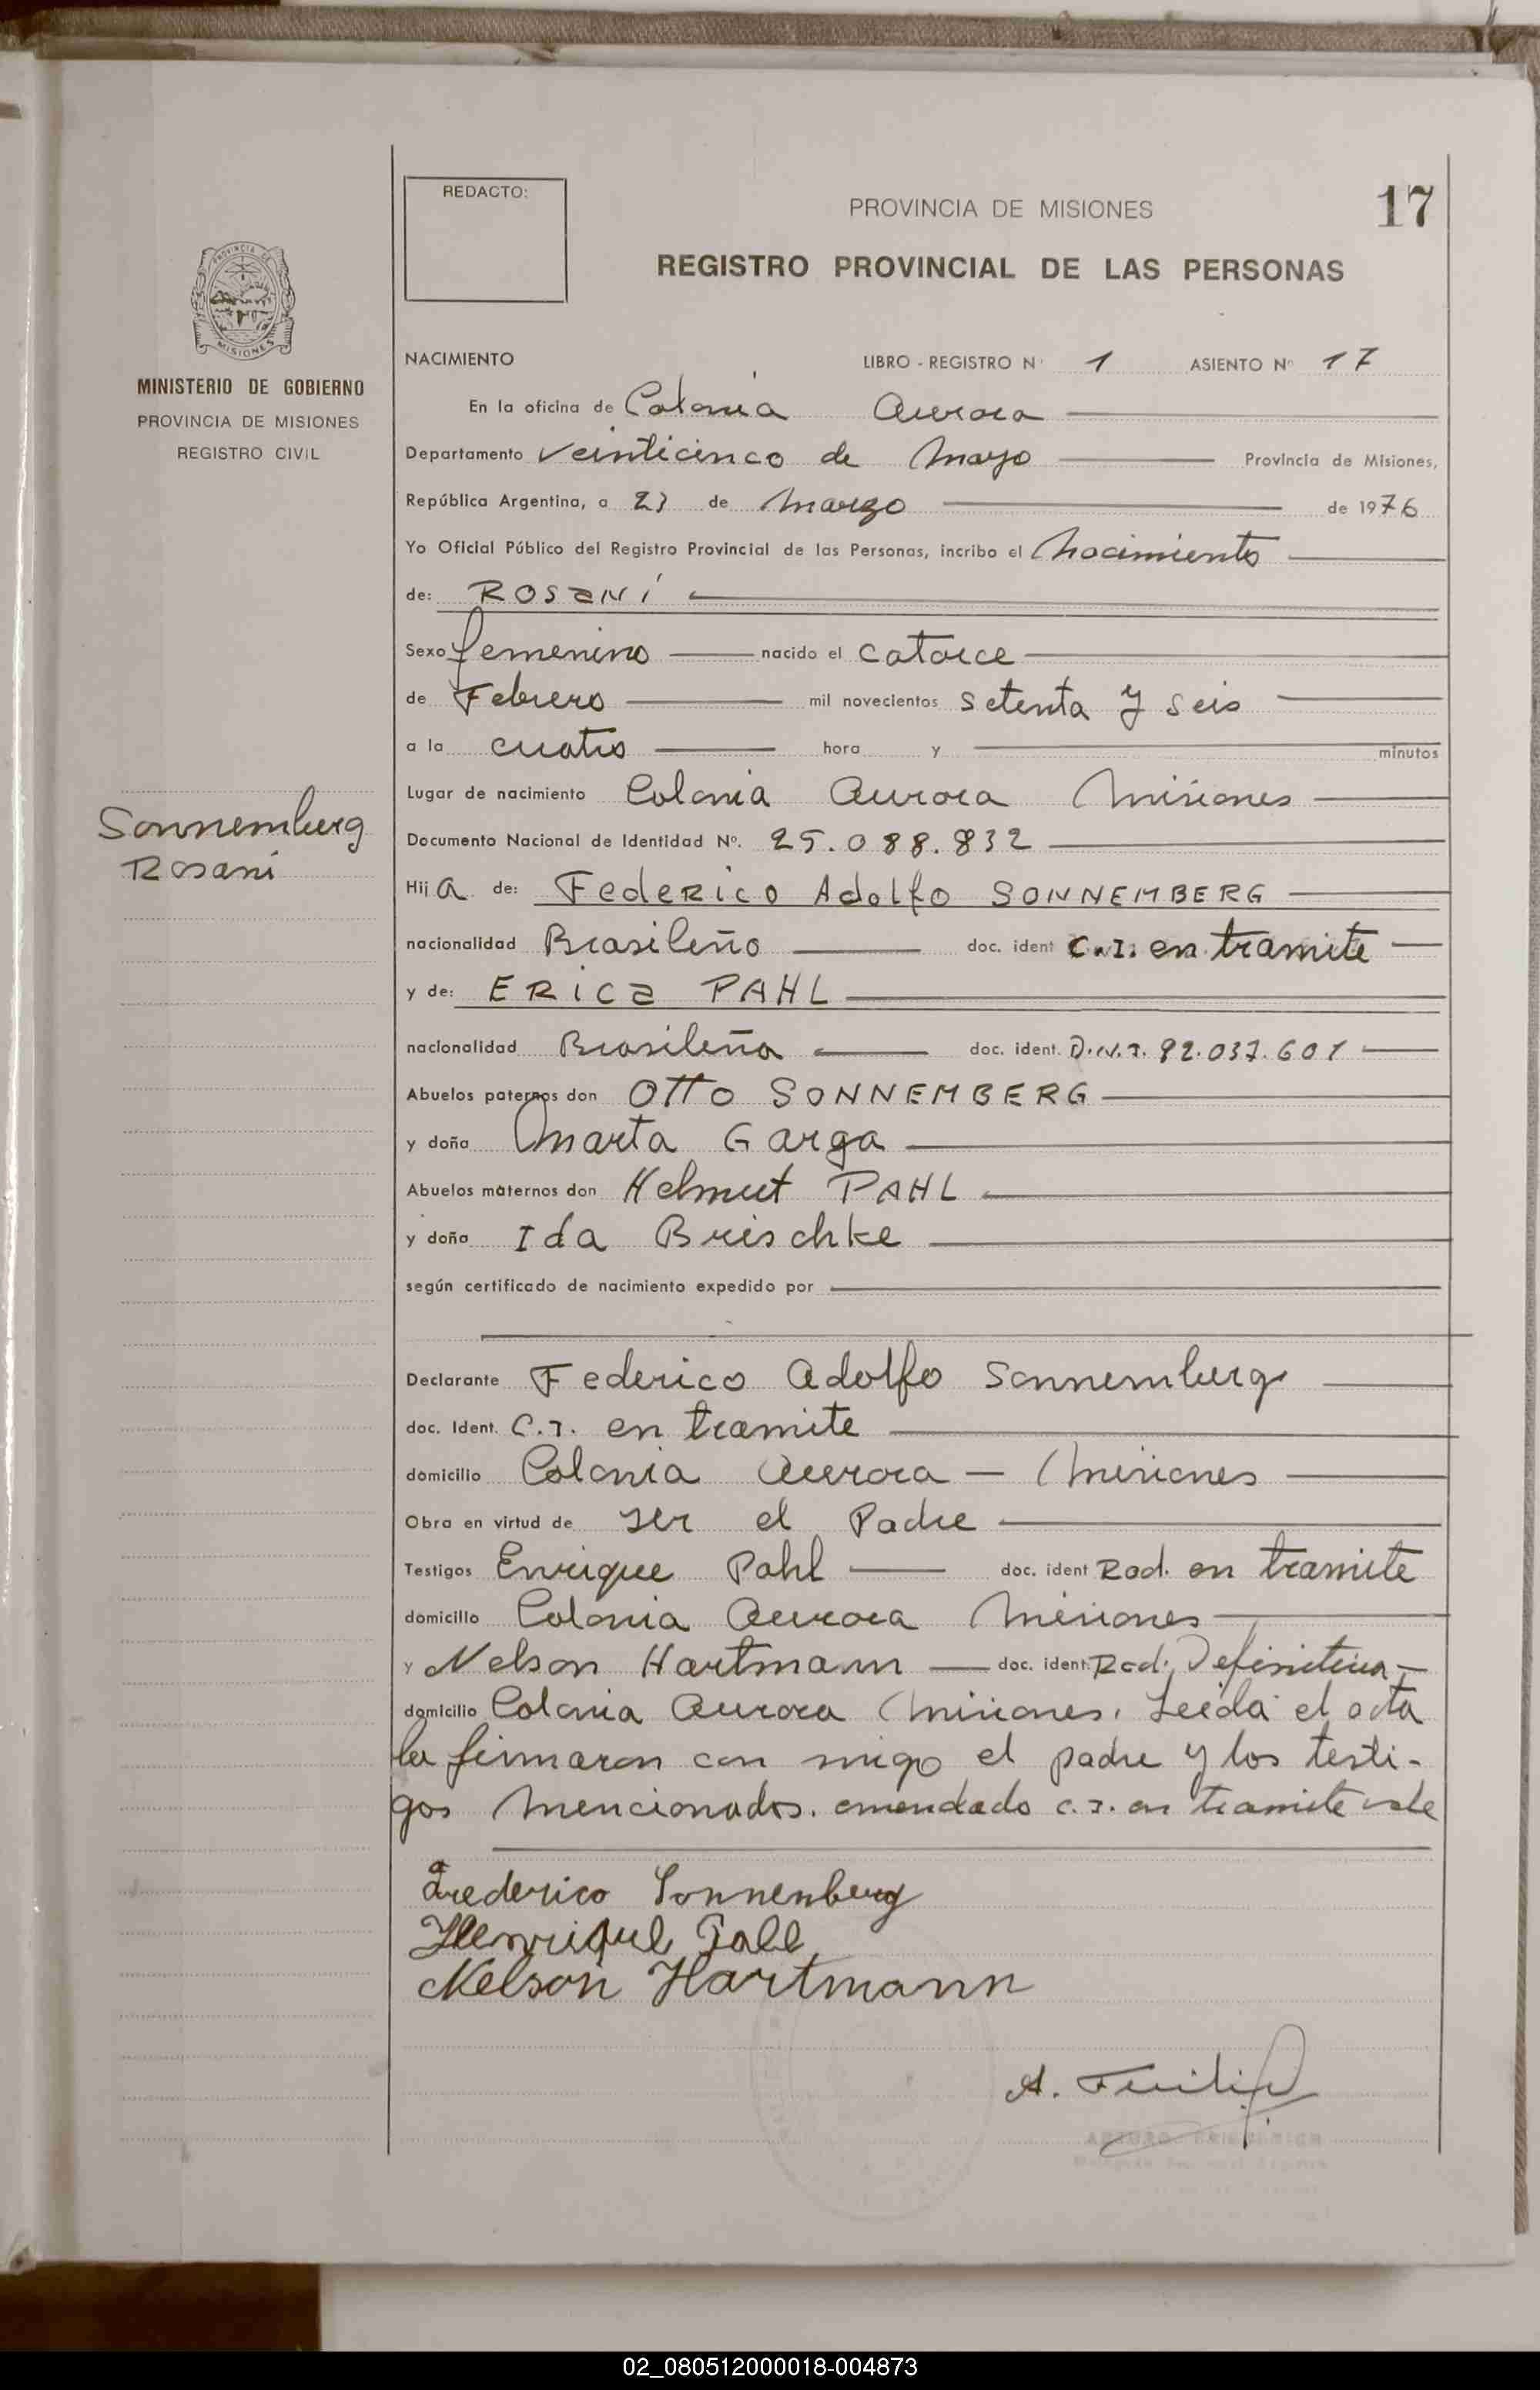 REDACTO:
PROVINCIA DE MISIONES
17
REGISTRO PROVINCIAL DE LAS PERSONAS
PROVINCIA DE
MISIONES
MINISTERIO DE GOBIERNO
PROVINCIA DE MISIONES
REGISTRO CIVIL
NACIMIENTO LIBRO - REGISTRO N° 1 ASIENTO N° 17
En la oficina de Colonia Aurora
Departamento veinticinco de Mayo Provincia de Misiones,
República Argentina, a 23 de Marzo de 1976
Yo Oficial Público del Registro Provincial de las Personas, incribo el Nacimiento
de: ROSANÍ
Sexo femenino nacido el catorce
de Febrero mil novecientos setenta y seis
a la cuatro hora y minutos
Lugar de nacimiento Colonia Aurora Misiones
Sonnemberg
Rosani
Documento Nacional de Identidad N°. 25.088.832
Hij a de: Federico Adolfo SONNEMBERG
nacionalidad Brasileño doc. ident C.I. en tramite
y de: ERICA PAHL
nacionalidad Brasileña doc. ident. D.N.I. 92.037.601
Abuelos paternos don OTTO SONNEMBERG
y doña Marta Garga
Abuelos maternos don Helmut PAHL
y doña Ida Brischke
según certificado de nacimiento expedido por
Declarante Federico Adolfo Sonnemberg
doc. Ident. C.I. en tramite
domicilio Colonia Aurora — Misiones
Obra en virtud de ser el Padre
Testigos Enrique Pahl doc. ident Rad. en tramite
domicilio Colonia Aurora Misiones
y Nelson Hartmann doc. ident. Rad. Definitiva
domicilio Colonia Aurora Misiones. Leída el acta
la firmaron con migo el padre y los testi-
gos mencionados. emendado C.I. en tramite vale
Frederico Sonnenberg
Henrique Pall
Nelson Hartmann
A.
02_080512000018-004873